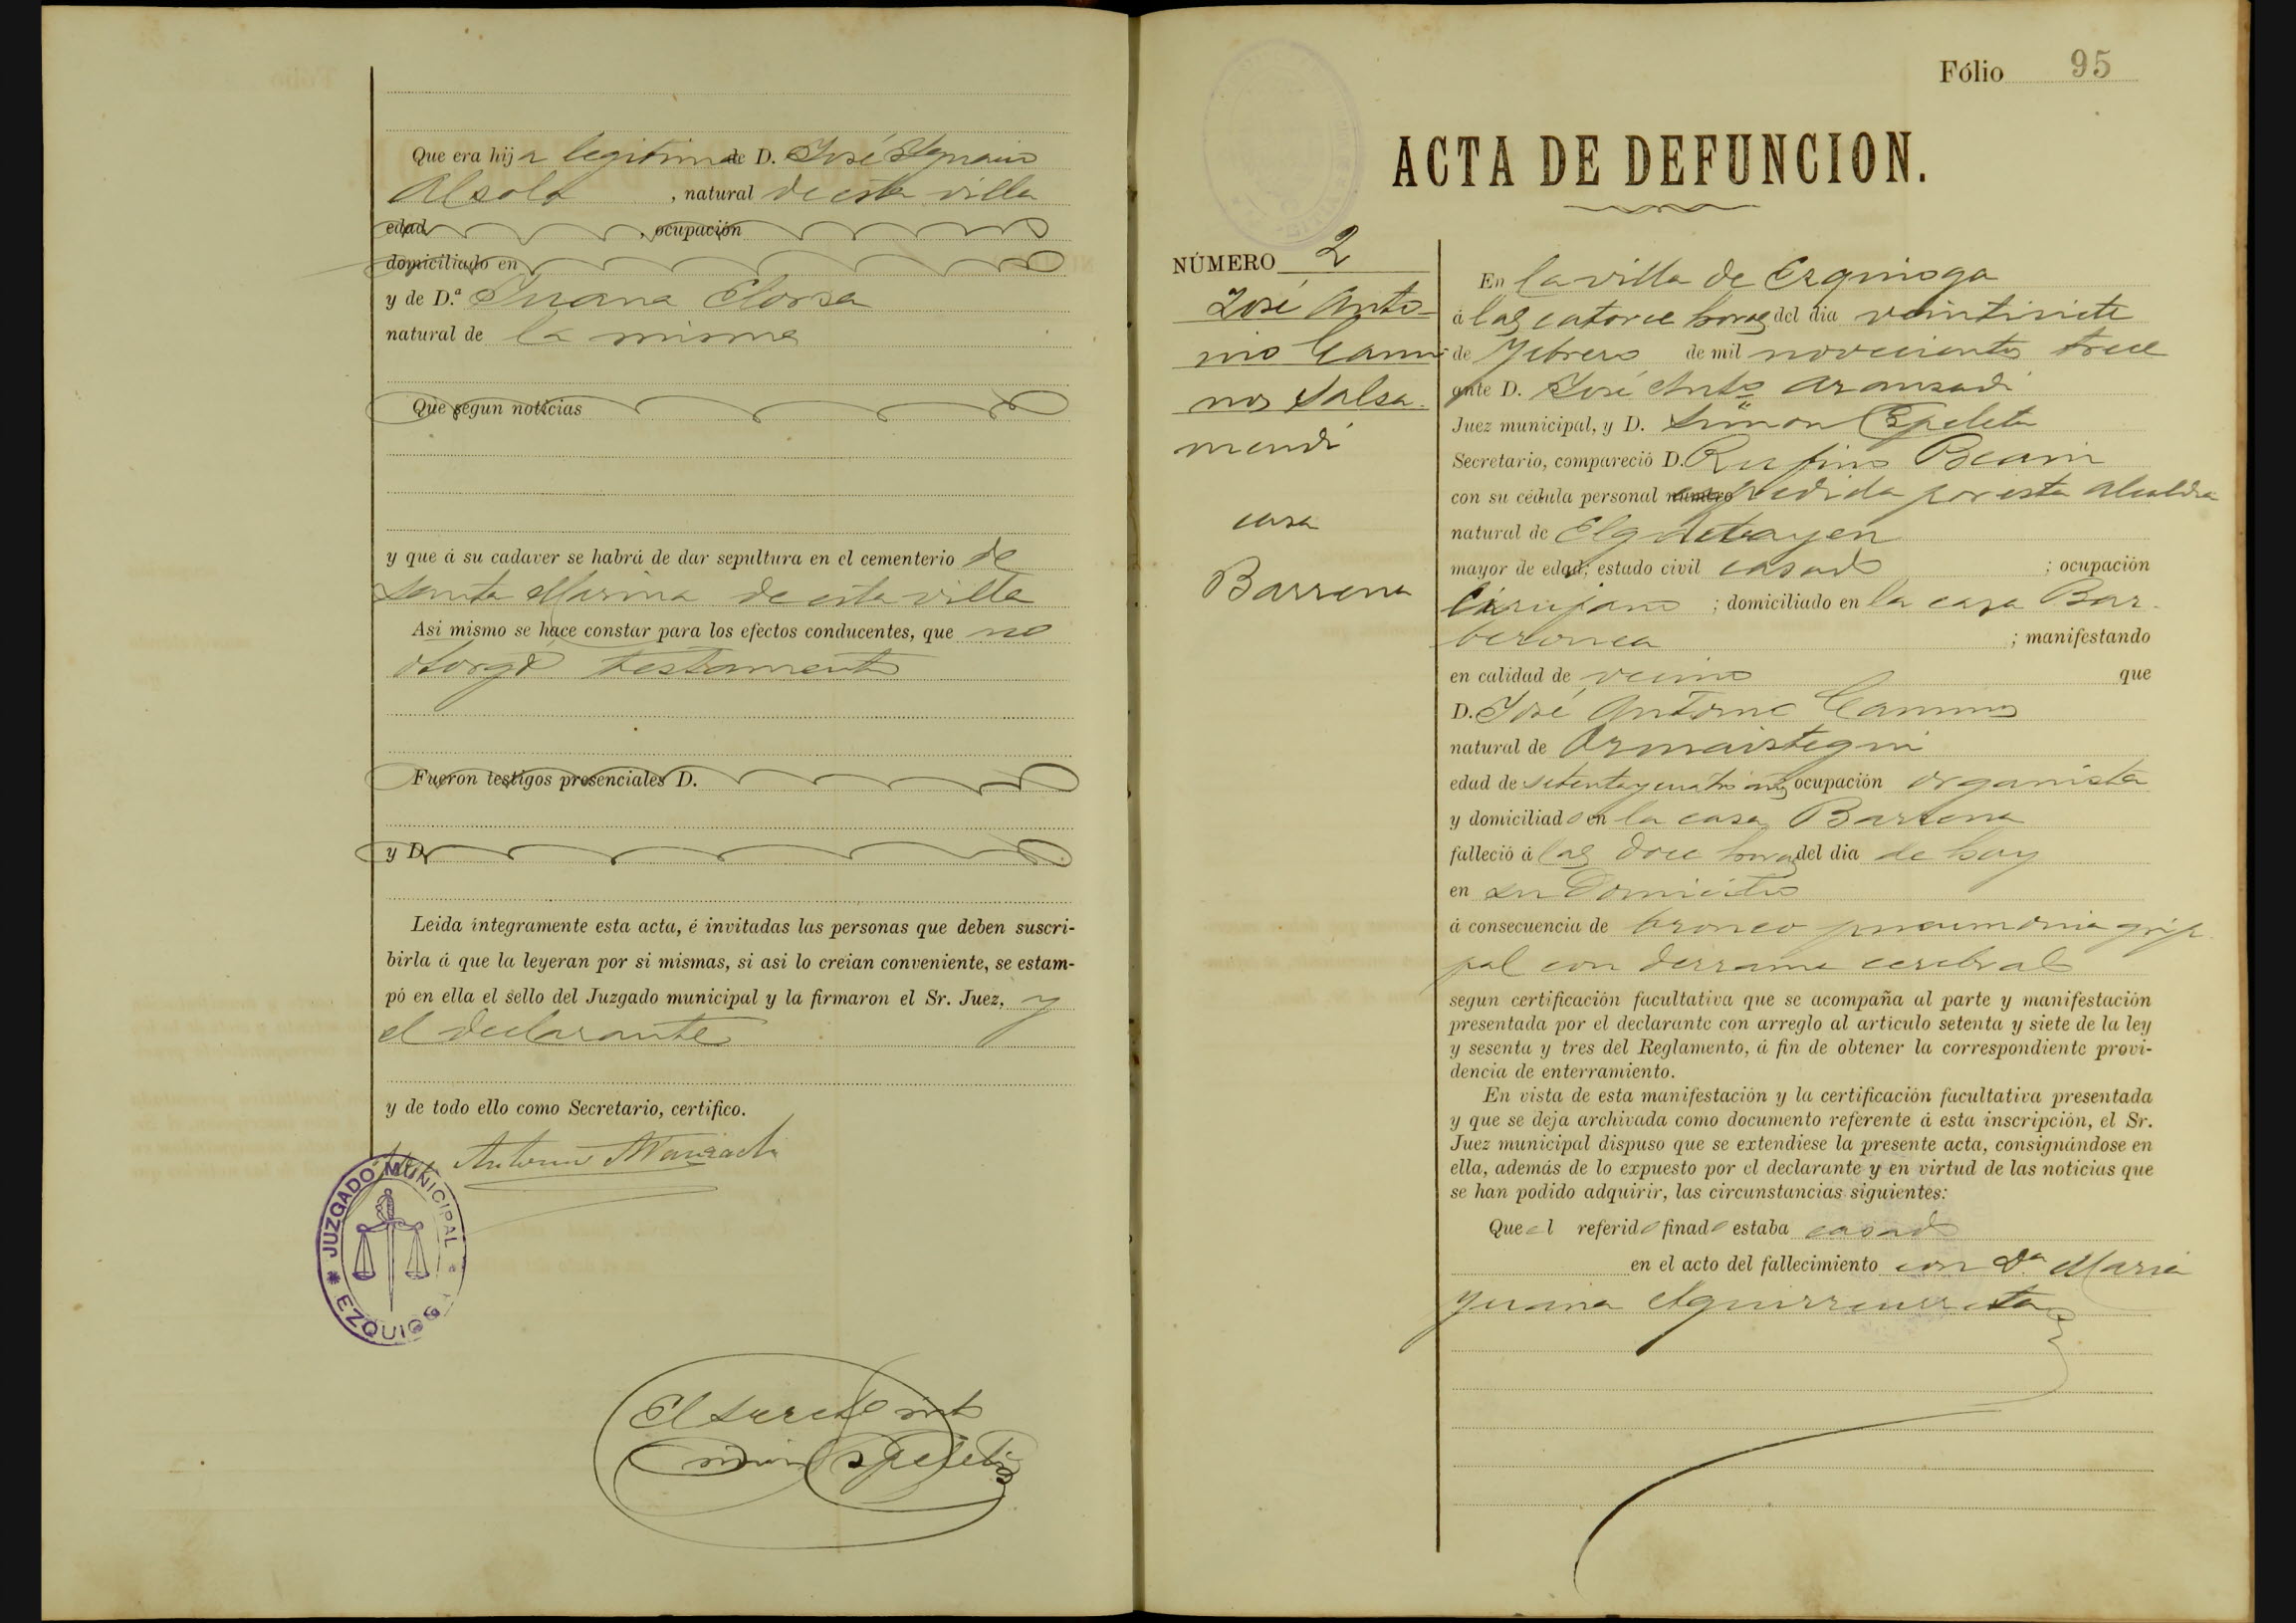 Que era hija legitima de D. José Ygnacio
Alsola, natural de esta villa
edad, ocupación
domiciliado en
y de D.ª Juana Elorza
natural de la misma
Que segun noticias
y que á su cadaver se habrá de dar sepultura en el cementerio de
Santa Marina de esta villa
Asi mismo se hace constar para los efectos conducentes, que no
otorgó testamento
Fueron testigos presenciales D.
y D.
Leida íntegramente esta acta, é invitadas las personas que deben suscri-
birla á que la leyeran por si mismas, si asi lo creian conveniente, se estam-
pó en ella el sello del Juzgado municipal y la firmaron el Sr. Juez, y
el declarante
y de todo ello como Secretario, certifico.
Antonio Aranzadi
JUZGADO MUNICIPAL
EZQUIOGA
El Secret
Simon Ezpeleta
Fólio 95
ACTA DE DEFUNCION.
NÚMERO 2
José Anto-
nio Cami
nos Salsa-
mendi
casa
Barrena
En la villa de Ezquioga
á las catorce horas del dia veintisiete
de Febrero de mil novecientos trece
ante D. José Anto Aranzadi
Juez municipal, y D. Simon Ezpeleta
Secretario, compareció D. Rufino Beain
con su cédula personal número espedida por esta Alcaldia
natural de Elgorriaga
mayor de edad; estado civil casado; ocupación
Cirujano; domiciliado en la casa Bar-
beronea; manifestando
en calidad de vecino que
D. José Antonio Caminos
natural de Ormaiztegui
edad de setenta y cuatro años ocupación organista
y domiciliado en la casa Barrena
falleció á las doce horas del dia de hoy
en su domicilio
á consecuencia de bronco pneumonia grip
pal con derrame cerebral
segun certificación facultativa que se acompaña al parte y manifestación
presentada por el declarante con arreglo al artículo setenta y siete de la ley
y sesenta y tres del Reglamento, á fin de obtener la correspondiente provi-
dencia de enterramiento.
En vista de esta manifestación y la certificación facultativa presentada
y que se deja archivada como documento referente á esta inscripción, el Sr.
Juez municipal dispuso que se extendiese la presente acta, consignándose en
ella, además de lo expuesto por el declarante y en virtud de las noticias que
se han podido adquirir, las circunstancias siguientes:
Que el referido finado estaba casado
en el acto del fallecimiento con Dª Maria
Juana Aguirreurreta